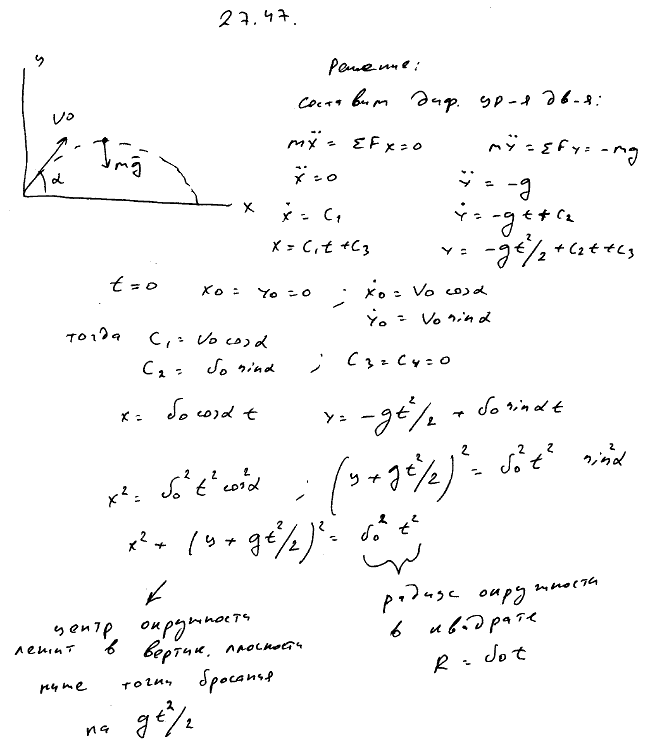 27.47.
y
Решение:
составим диф. ур-я дв-я:
V0
α
mg̅
x
mẍ = ΣFx=0    mÿ = ΣFy= -mg
ẍ=0    ÿ = -g
ẋ = C₁    ẏ = -gt+C₂
x = C₁t+C₃    y = -gt²/2+C₂t+C₃
t=0    x0 = y0=0 ; ẋ0 = V0 cosα
ẏ0 = V0 sinα
тогда C₁ = V0 cosα
C₂ = V0 sinα ; C₃=C₄=0
x = V0 cosα t    y = -gt²/2 + V0 sinα t
x² = V0² t² cos²α ; (y+gt²/2)² = V0² t² sin²α
x² + (y+gt²/2)² = V0² t²
центр окружности
лежит в вертик. плоскости
ниже точки бросания
на gt²/2
радиус окружности
в квадрате
R = V0t